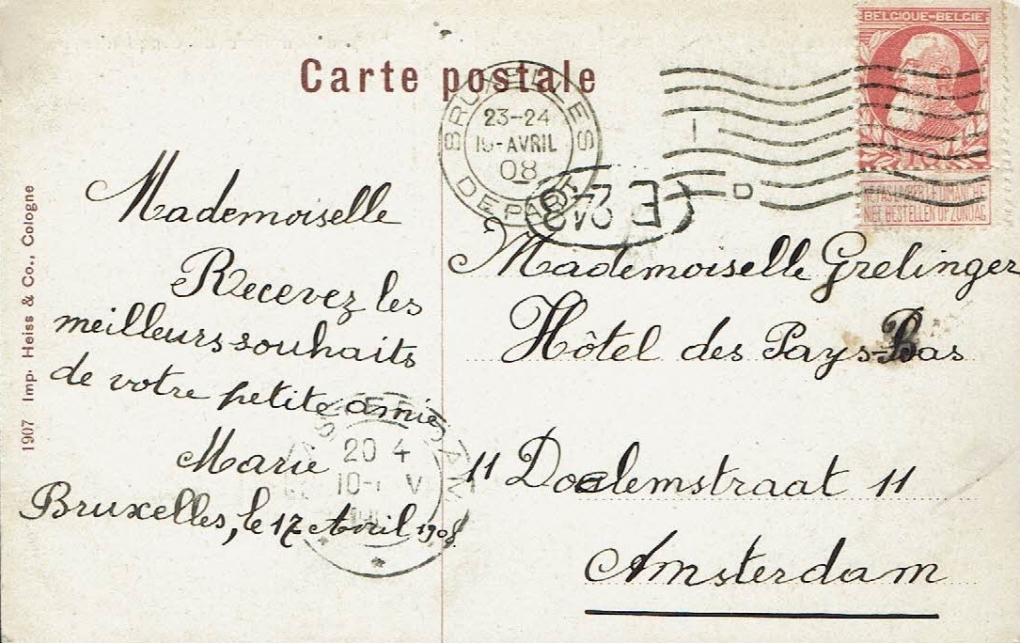 Carte postale
BELGIQUE-BELGIE
BRUXELLES
23-24
AVRIL
08
DEPART
NE PAS LIVRER LE DIMANCHE
NIET BESTELLEN OP ZONDAG
Mademoiselle
Recevez les
meilleurs souhaits
de votre petite amie
Marie
Bruxelles, le 17 Avril 1908
Mademoiselle Grelinger
Hôtel des Pays-Bas
11 Doelemstraat 11
Amsterdam
20 4
1907 Imp. Heiss & Co., Cologne